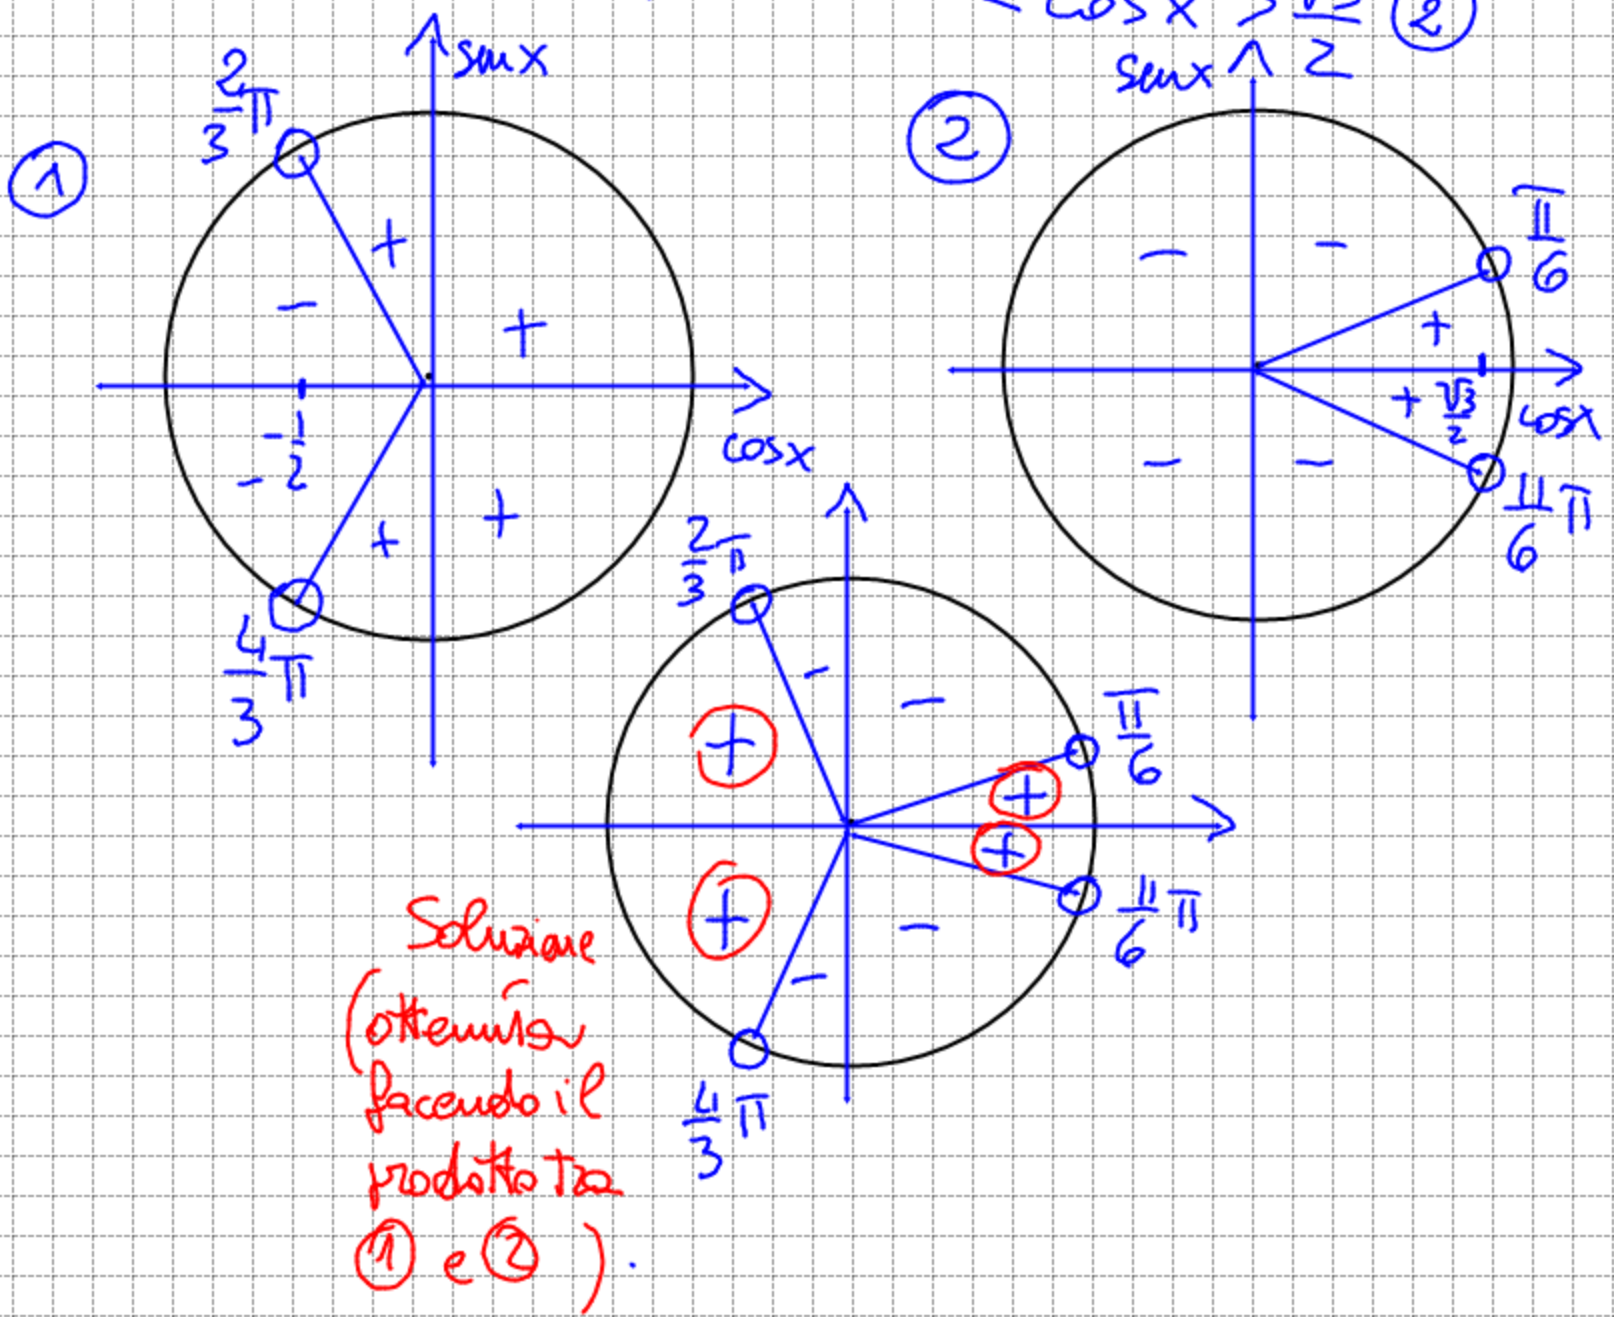 cos x >
2
②
①
senx
2/3 π
+
-
+
- 1/2
-
+
+
cosx
4/3 π
②
senx
-
-
π/6
+
+ √3/2
cosx
-
-
11/6 π
2/3 π
-
-
π/6
+
+
+
+
-
-
11/6 π
4/3 π
Soluzione
(ottenuta
facendo il
prodotto tra
① e ②).